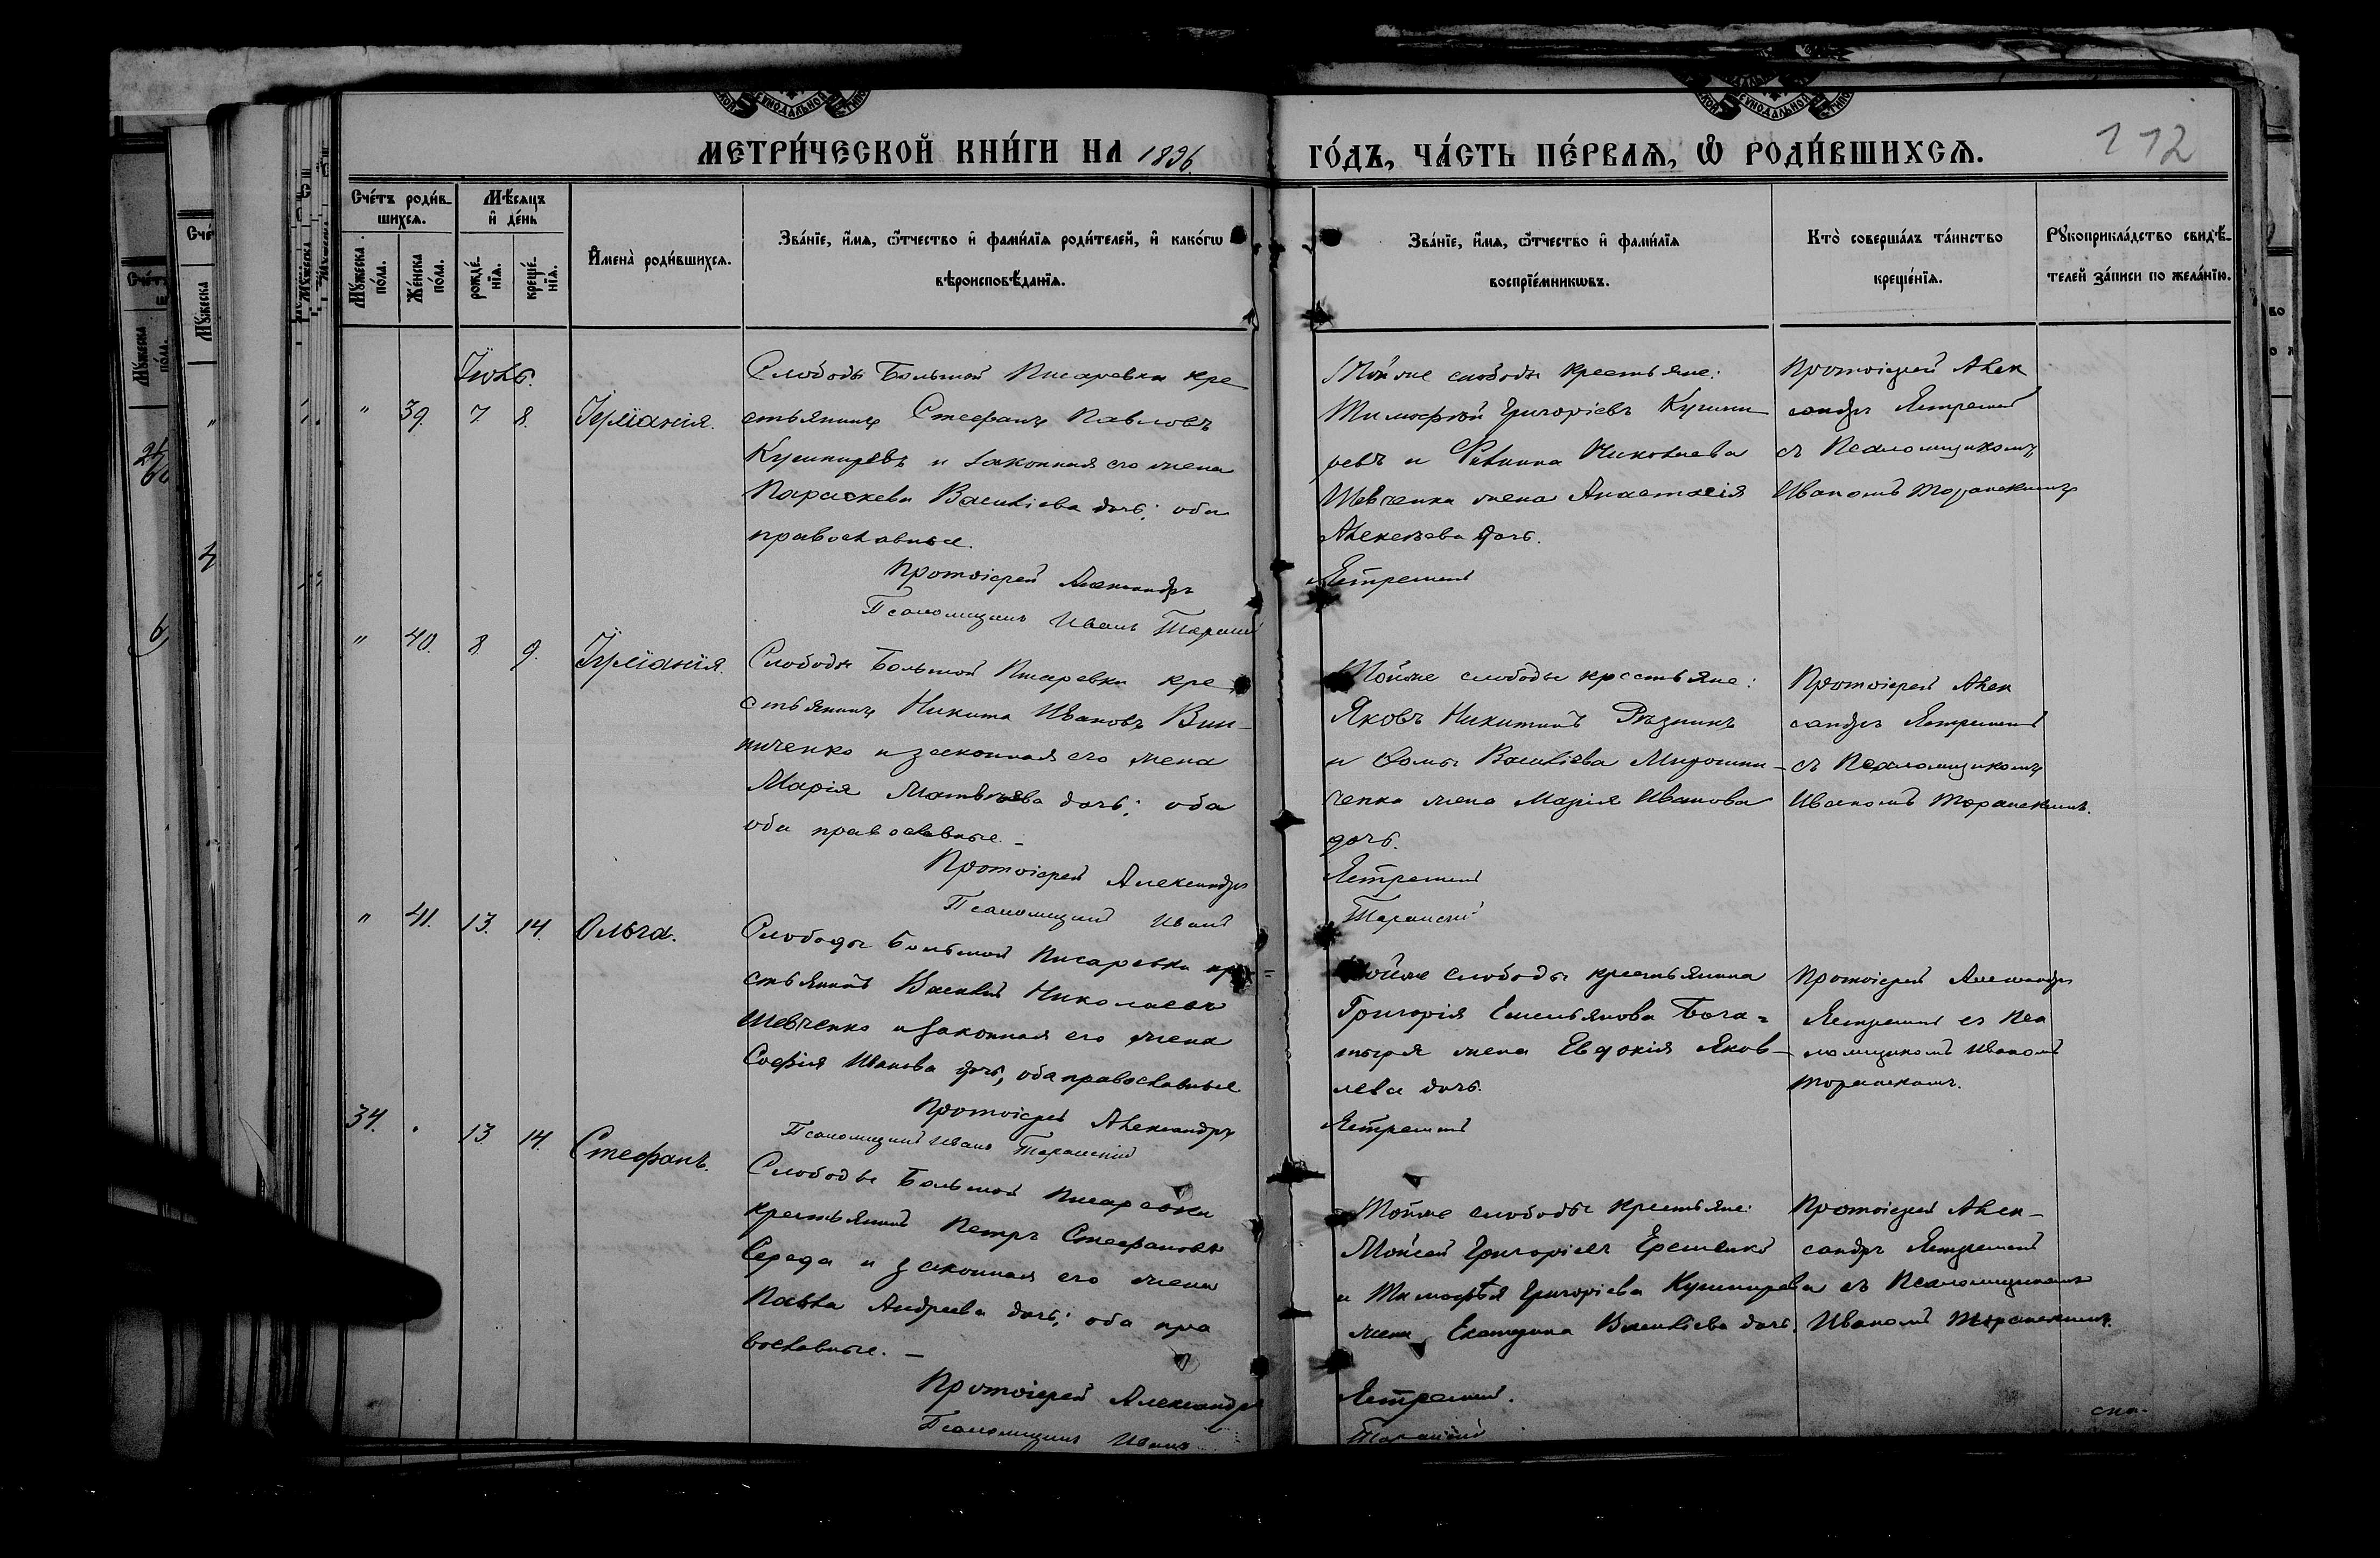 МЕТРИ́ЧЕСКОЙ КНИ́ГИ НА 1896 ГО́ДЪ, ЧА́СТЬ ПЕ́РВАѦ, Ѽ РОДИ́ВШИХСѦ.
112
Сче́тъ роди́в-
шихсѧ.
Мѣ́сѧцъ
и҆ де́нь
Мꙋ́жеска
по́ла.
Же́нска
по́ла.
рожде́-
нїѧ.
креще́-
нїѧ.
И҆мена̀ роди́вшихсѧ.
Зва́нїе, и҆́мѧ, ѻ҆́тчество и҆ фами́лїѧ роди́телей, и҆ како́гѡ
вѣроисповѣ́данїѧ.
Зва́нїе, и҆́мѧ, ѻ҆́тчество и҆ фами́лїѧ
воспрїе́мникѡвъ.
Кто̀ соверша́лъ та́инство
креще́нїѧ.
Рꙋкоприкла́дство свидѣ́-
телей за́писи по жела́нїю.
Іюль.
" 39. 7. 8. Іуліанія.
Слободы Большой Писаревки кре
стьянинъ Стефанъ Павловъ
Кушниревъ и законная его жена
Параскева Васильева дочь; оба
православные.
Протоіерей Александръ
Псаломщикъ Иванъ
Тойже слободы крестьяне:
Тимофей Григоріевъ Кушни
ревъ и Филиппа Николаева
Шевченка жена Анастасія
Алексеева дочь.
Протоіерей Алек
сандръ
съ Псаломщикомъ
Иваномъ
" 40. 8. 9. Іуліанія.
Слободы Большой Писаревки кре
стьянинъ Никита Ивановъ Вин-
ниченко и законная его жена
Марія Матвѣева дочь; оба
оба православные. -
Протоіерей Александръ
Псаломщикъ Иванъ
Тойже слободы крестьяне:
Яковъ Никитинъ Рѣзникъ
и Ѳомы Васильева Мирошни-
ченка жена Марія Иванова
дочь.
Протоіерей Алек
сандръ
съ Псаломщикомъ
Иваномъ
" 41. 13. 14. Ольга.
Слободы Большой Писаревки кре
стьянинъ Василій Николаевъ
Шевченко и законная его жена
Софія Иванова дочь, оба православные
Протоіерей Александръ
Псаломщикъ Иванъ
Тойже слободы крестьянина
Григорія Емельянова Бога=
тыря жена Евдокія Яков-
лева дочь.
Протоіерей Александръ
съ Пса
ломщикомъ Иваномъ
34. . 13. 14. Стефанъ.
Слободы Большой Писаревки
крестьянинъ Петръ Стефановъ
Середа и законная его жена
Павла Андреева дочь; оба пра
вославные. -
Протоіерей Александръ
Псаломщикъ Иванъ
Тойже слободы крестьяне:
Мойсей Григоріевъ Ерешенко
и Тимофѣя Григоріева Кушнирева
жена, Екатерина Васильева дочь.
Протоіерей Алек-
сандръ
съ Псаломщикомъ
Иваномъ